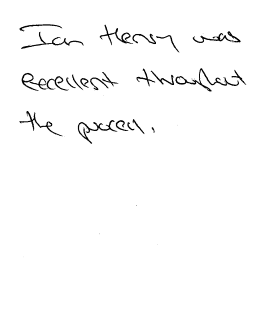 Ian Henry was
excellent throughout
the process.